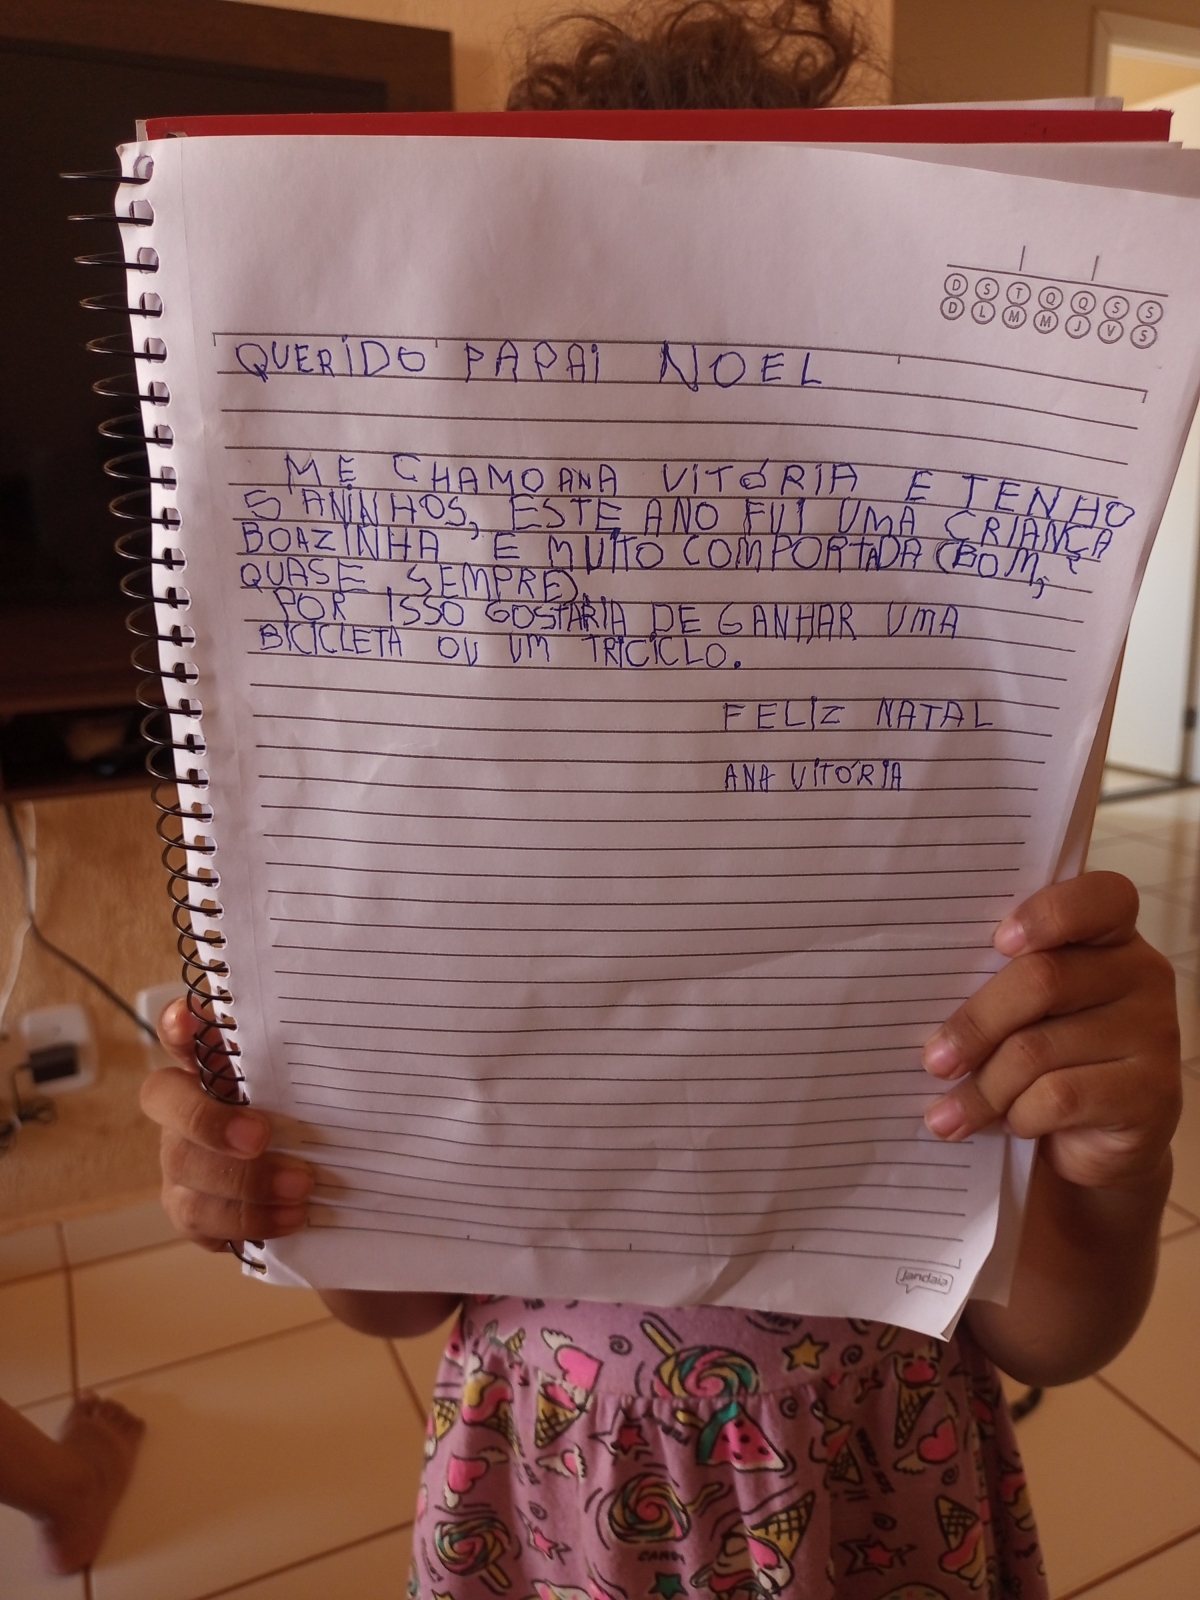 D S T Q Q S S
D L M M J V S
QUERIDO PAPAI NOEL
ME CHAMO ANA VITÓRIA E TENHO
5 ANINHOS, ESTE ANO FUI UMA CRIANÇA
BOAZINHA E MUITO COMPORTADA (BOM,
QUASE SEMPRE)
POR ISSO GOSTARIA DE GANHAR UMA
BICICLETA OU UM TRICICLO.
FELIZ NATAL
ANA VITÓRIA
jandaia